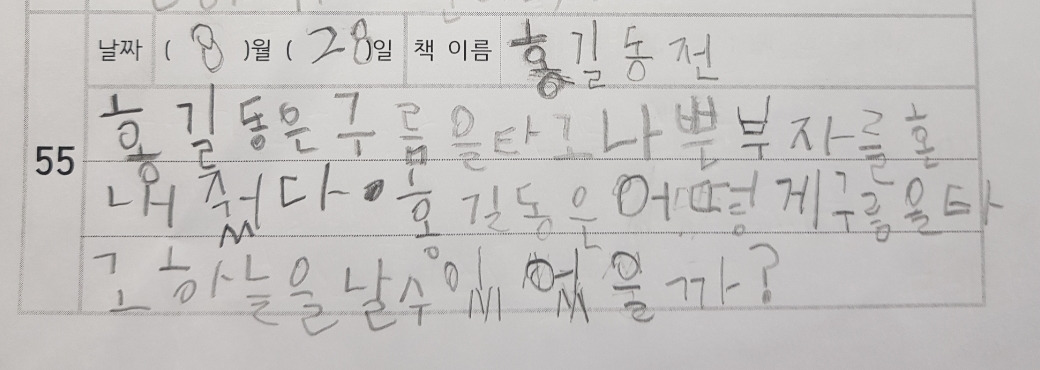 날짜 ( 8 )월 ( 28 )일 책 이름 홍길동전
55
홍길동은구름을타고나쁜부자를혼
내줬다. 홍길동은어떵게구름을타
고하늘을날수있었을까?